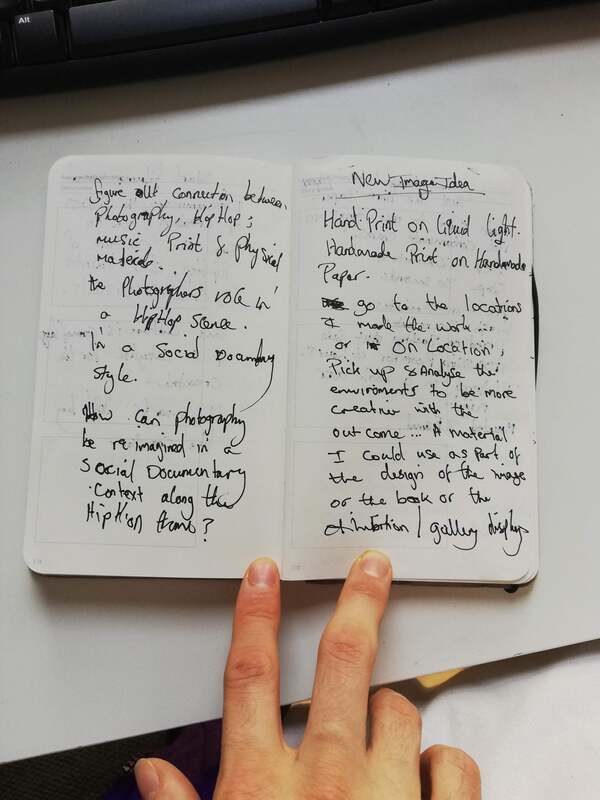 Alt
figure out connection between
Photography, HipHop,
music Print & physical
material.
the Photographers role in
a HipHop Science.
In a Social Documentary
style.
How can photography
be reimagined in a
Social Documentary
Context along the
HipHop
?
New Image Idea
Hand Print on liquid light.
Handmade Print on Handmade
Paper.
go to the locations
I made the work...
or on 'Location',
Pick up & Analyse the
enviroments to be more
creative with the
out come... A material
I could use as part of
the design of the image
or the book or the
/ gallery display